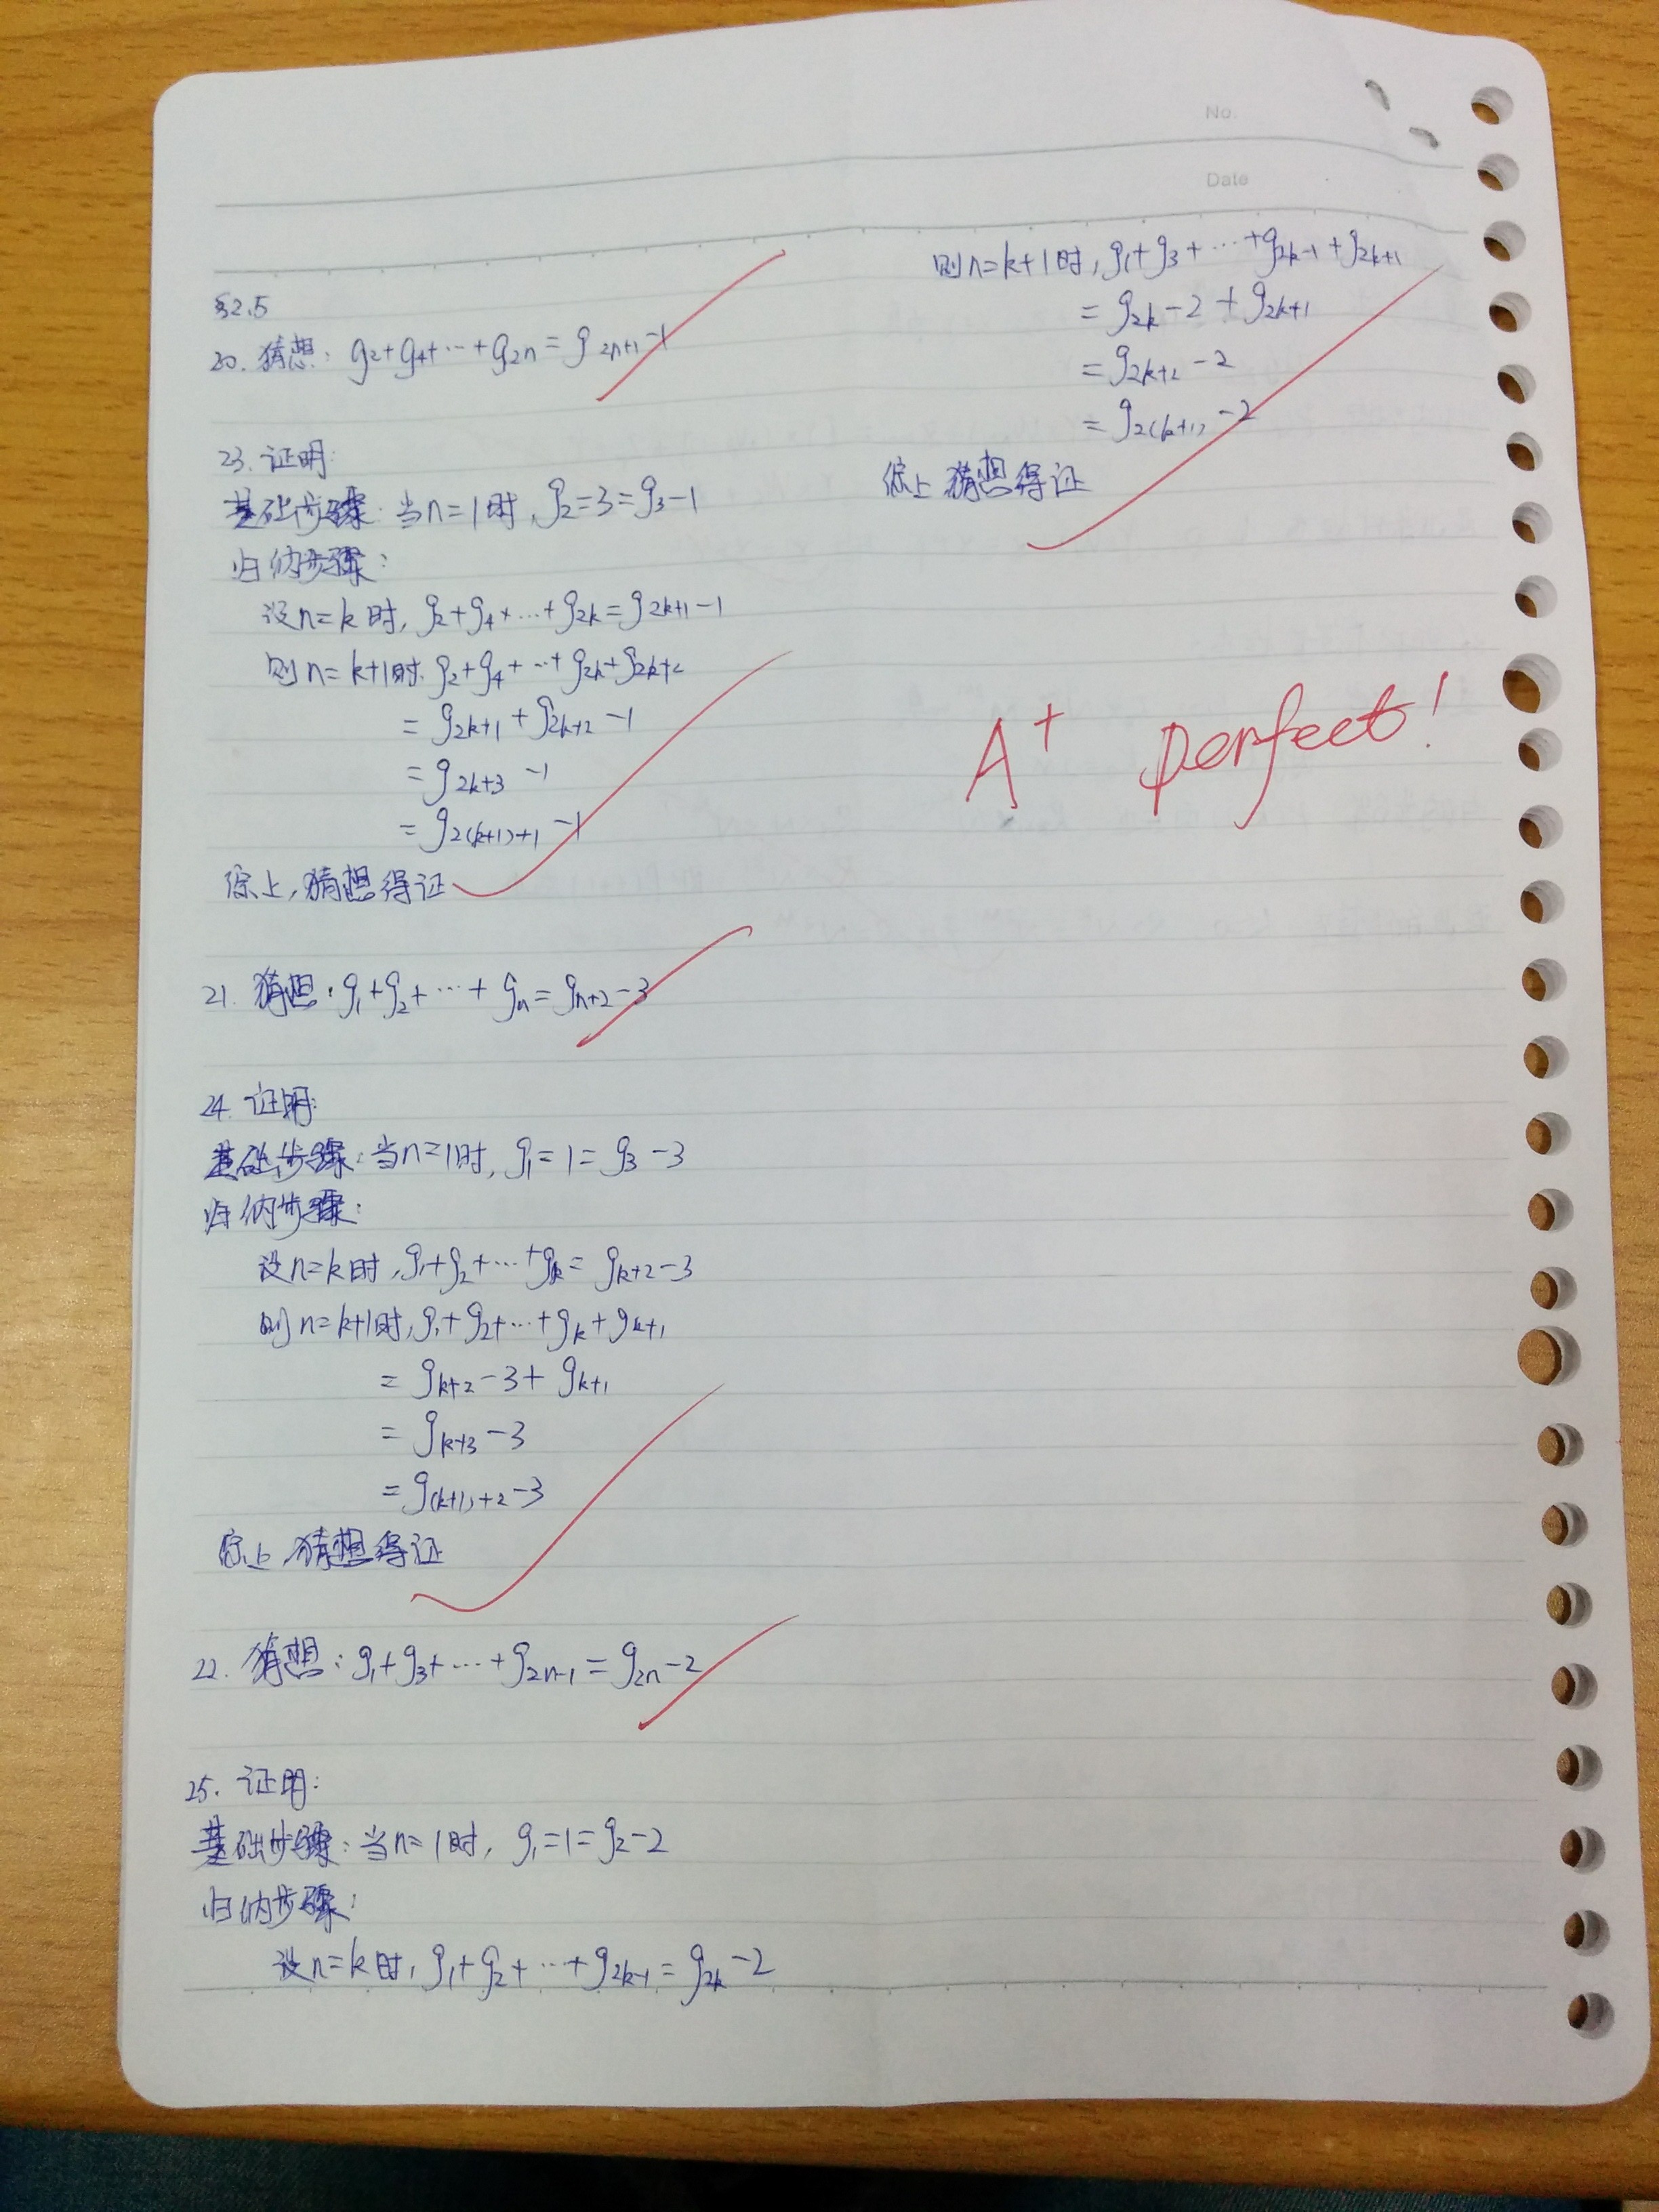 No.
Date
§2.5
20. 猜想: g₂+g₄+…+g₂ₙ = g₂ₙ₊₁-1
23. 证明:
基础步骤: 当n=1时, g₂=3=g₃-1
归纳步骤:
设n=k时, g₂+g₄+…+g₂ₖ=g₂ₖ₊₁-1
则n=k+1时, g₂+g₄+…+g₂ₖ+g₂ₖ₊₂
= g₂ₖ₊₁+g₂ₖ₊₂-1
= g₂ₖ₊₃-1
= g₂₍ₖ₊₁₎₊₁-1
综上,猜想得证
21. 猜想: g₁+g₂+…+gₙ=gₙ₊₂-3
24. 证明:
基础步骤: 当n=1时, g₁=1=g₃-3
归纳步骤:
设n=k时, g₁+g₂+…+gₖ=gₖ₊₂-3
则n=k+1时, g₁+g₂+…+gₖ+gₖ₊₁
= gₖ₊₂-3+gₖ₊₁
= gₖ₊₃-3
= g₍ₖ₊₁₎₊₂-3
综上,猜想得证
22. 猜想: g₁+g₃+…+g₂ₙ₋₁=g₂ₙ-2
25. 证明:
基础步骤: 当n=1时, g₁=1=g₂-2
归纳步骤:
设n=k时, g₁+g₂+…+g₂ₖ₋₁=g₂ₖ-2
则n=k+1时, g₁+g₃+…+g₂ₖ₋₁+g₂ₖ₊₁
= g₂ₖ-2+g₂ₖ₊₁
= g₂ₖ₊₂-2
= g₂₍ₖ₊₁₎-2
综上猜想得证
A⁺ perfect!